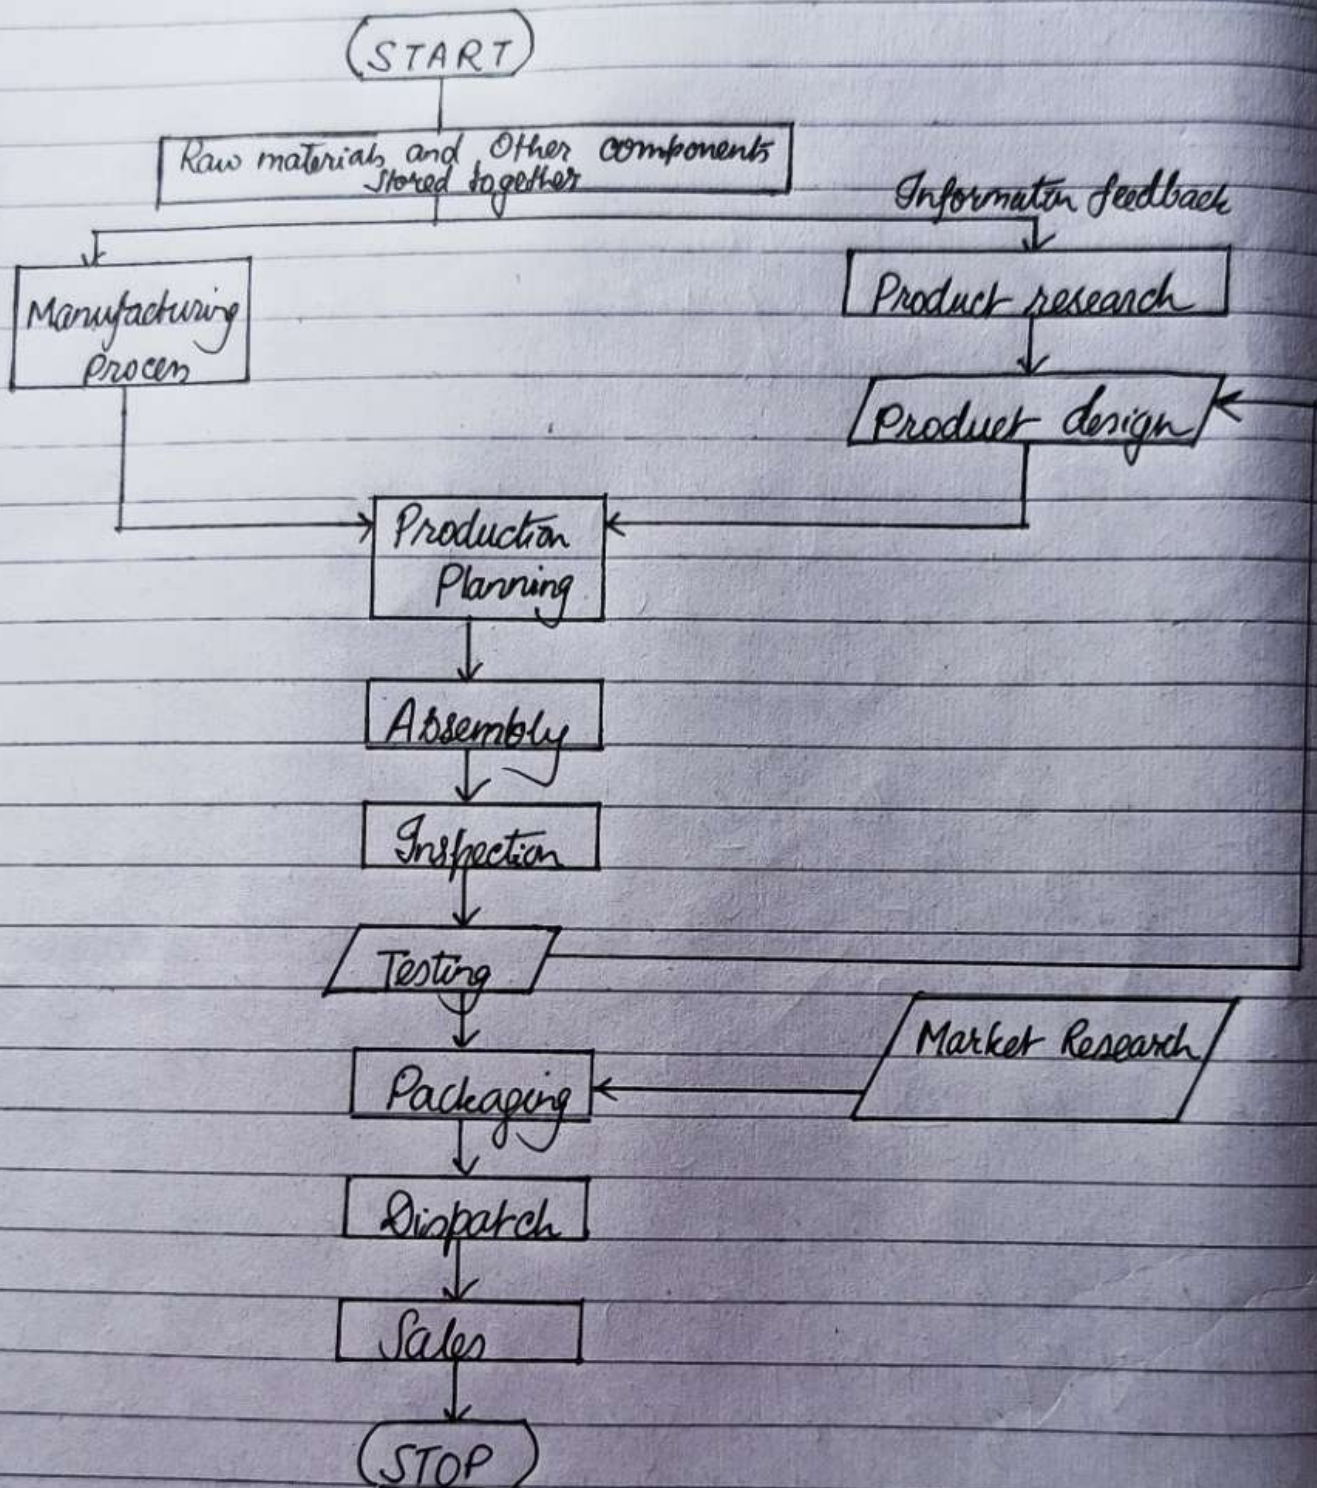 START
Raw materials and Other components
stored together
Information feedback
Manufacturing
Process
Product research
Product design
Production
Planning
Assembly
Inspection
Testing
Market Research
Packaging
Dispatch
Sales
STOP